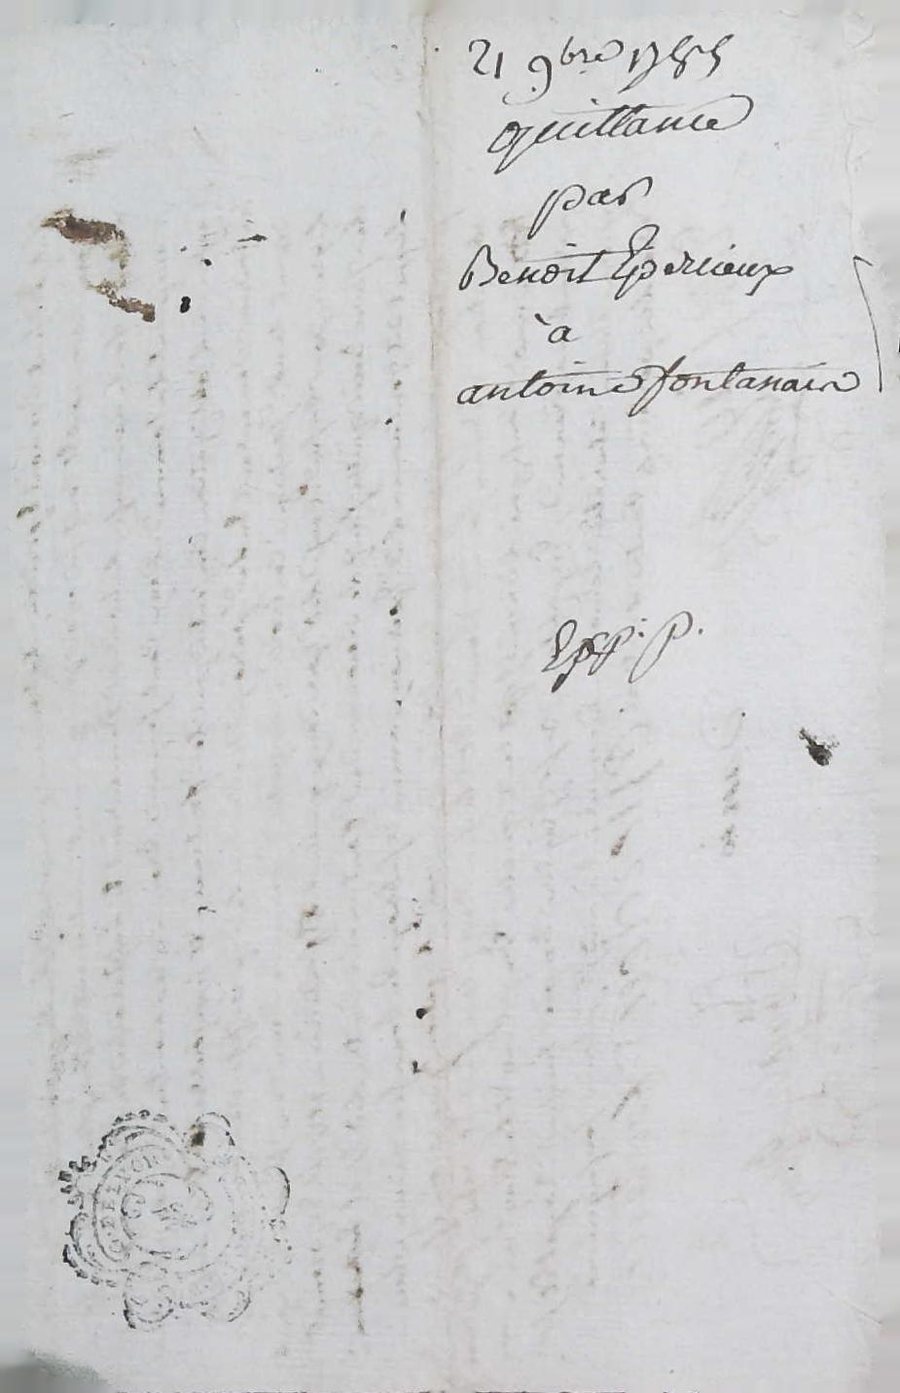 21 9bre 1785
Quittance
par
Benoit Eperieux
à
antoine fontanaire
Exp. p.